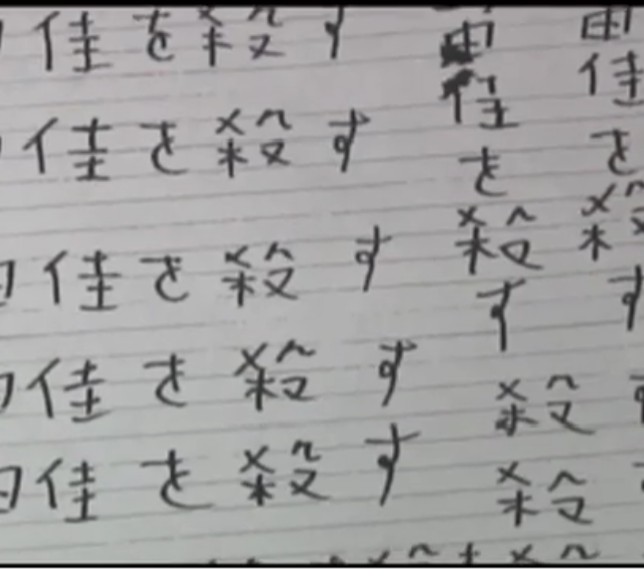 佳を殺す
佳を殺す
佳を殺す
佳を殺す
佳を殺す
由佳を殺す
殺
殺
由佳を殺す